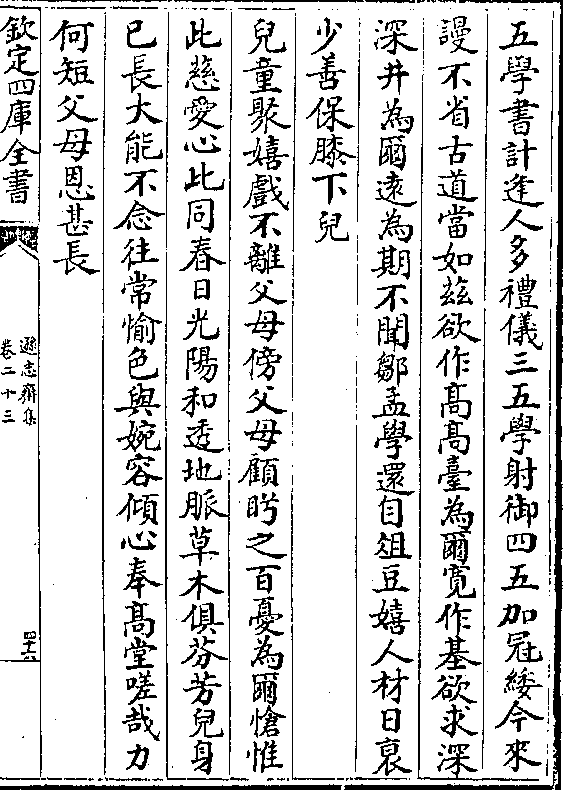 五學書計逢人多禮儀三五學射御四五加冠緌今來
謾不省古道當如兹欲作髙髙臺為爾寛作基欲求深
深井為爾遠為期不聞鄒孟學還自俎豆嬉人材日衰
少善保膝下兒
兒童聚嬉戲不離父母傍父母顧眄之百憂為爾愴惟
此慈愛心此同春日光陽和透地脈草木俱芬芳兒身
已長大能不念往常愉色與婉容傾心奉髙堂嗟哉力
何短父母恩甚長
欽定四庫全書
遜志齋集
卷二十三
四十六